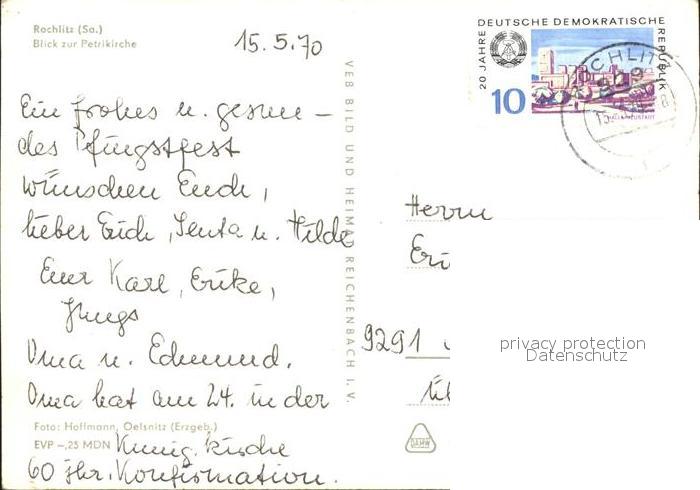 Rochlitz (Sa.)
Blick zur Petrikirche
15.5.70
Ein frohes u. gesun-
des Pfingstfest
wünschen Euch,
lieber Erich, Senta u. Hilde
Euer Karl, Erike,
Jungs
Oma u. Edmund.
Oma hat am 24. in der
Foto: Hoffmann, Oelsnitz (Erzgeb.)
EVP -,25 MDN
Kunig. kirche
60 jhr. Konfirmation.
VEB BILD UND HEIMAT REICHENBACH I. V.
20 JAHRE DEUTSCHE DEMOKRATISCHE REPUBLIK
10
HALLE-NEUSTADT
Herrn
Eri
9291
DAMW
privacy protection
Datenschutz